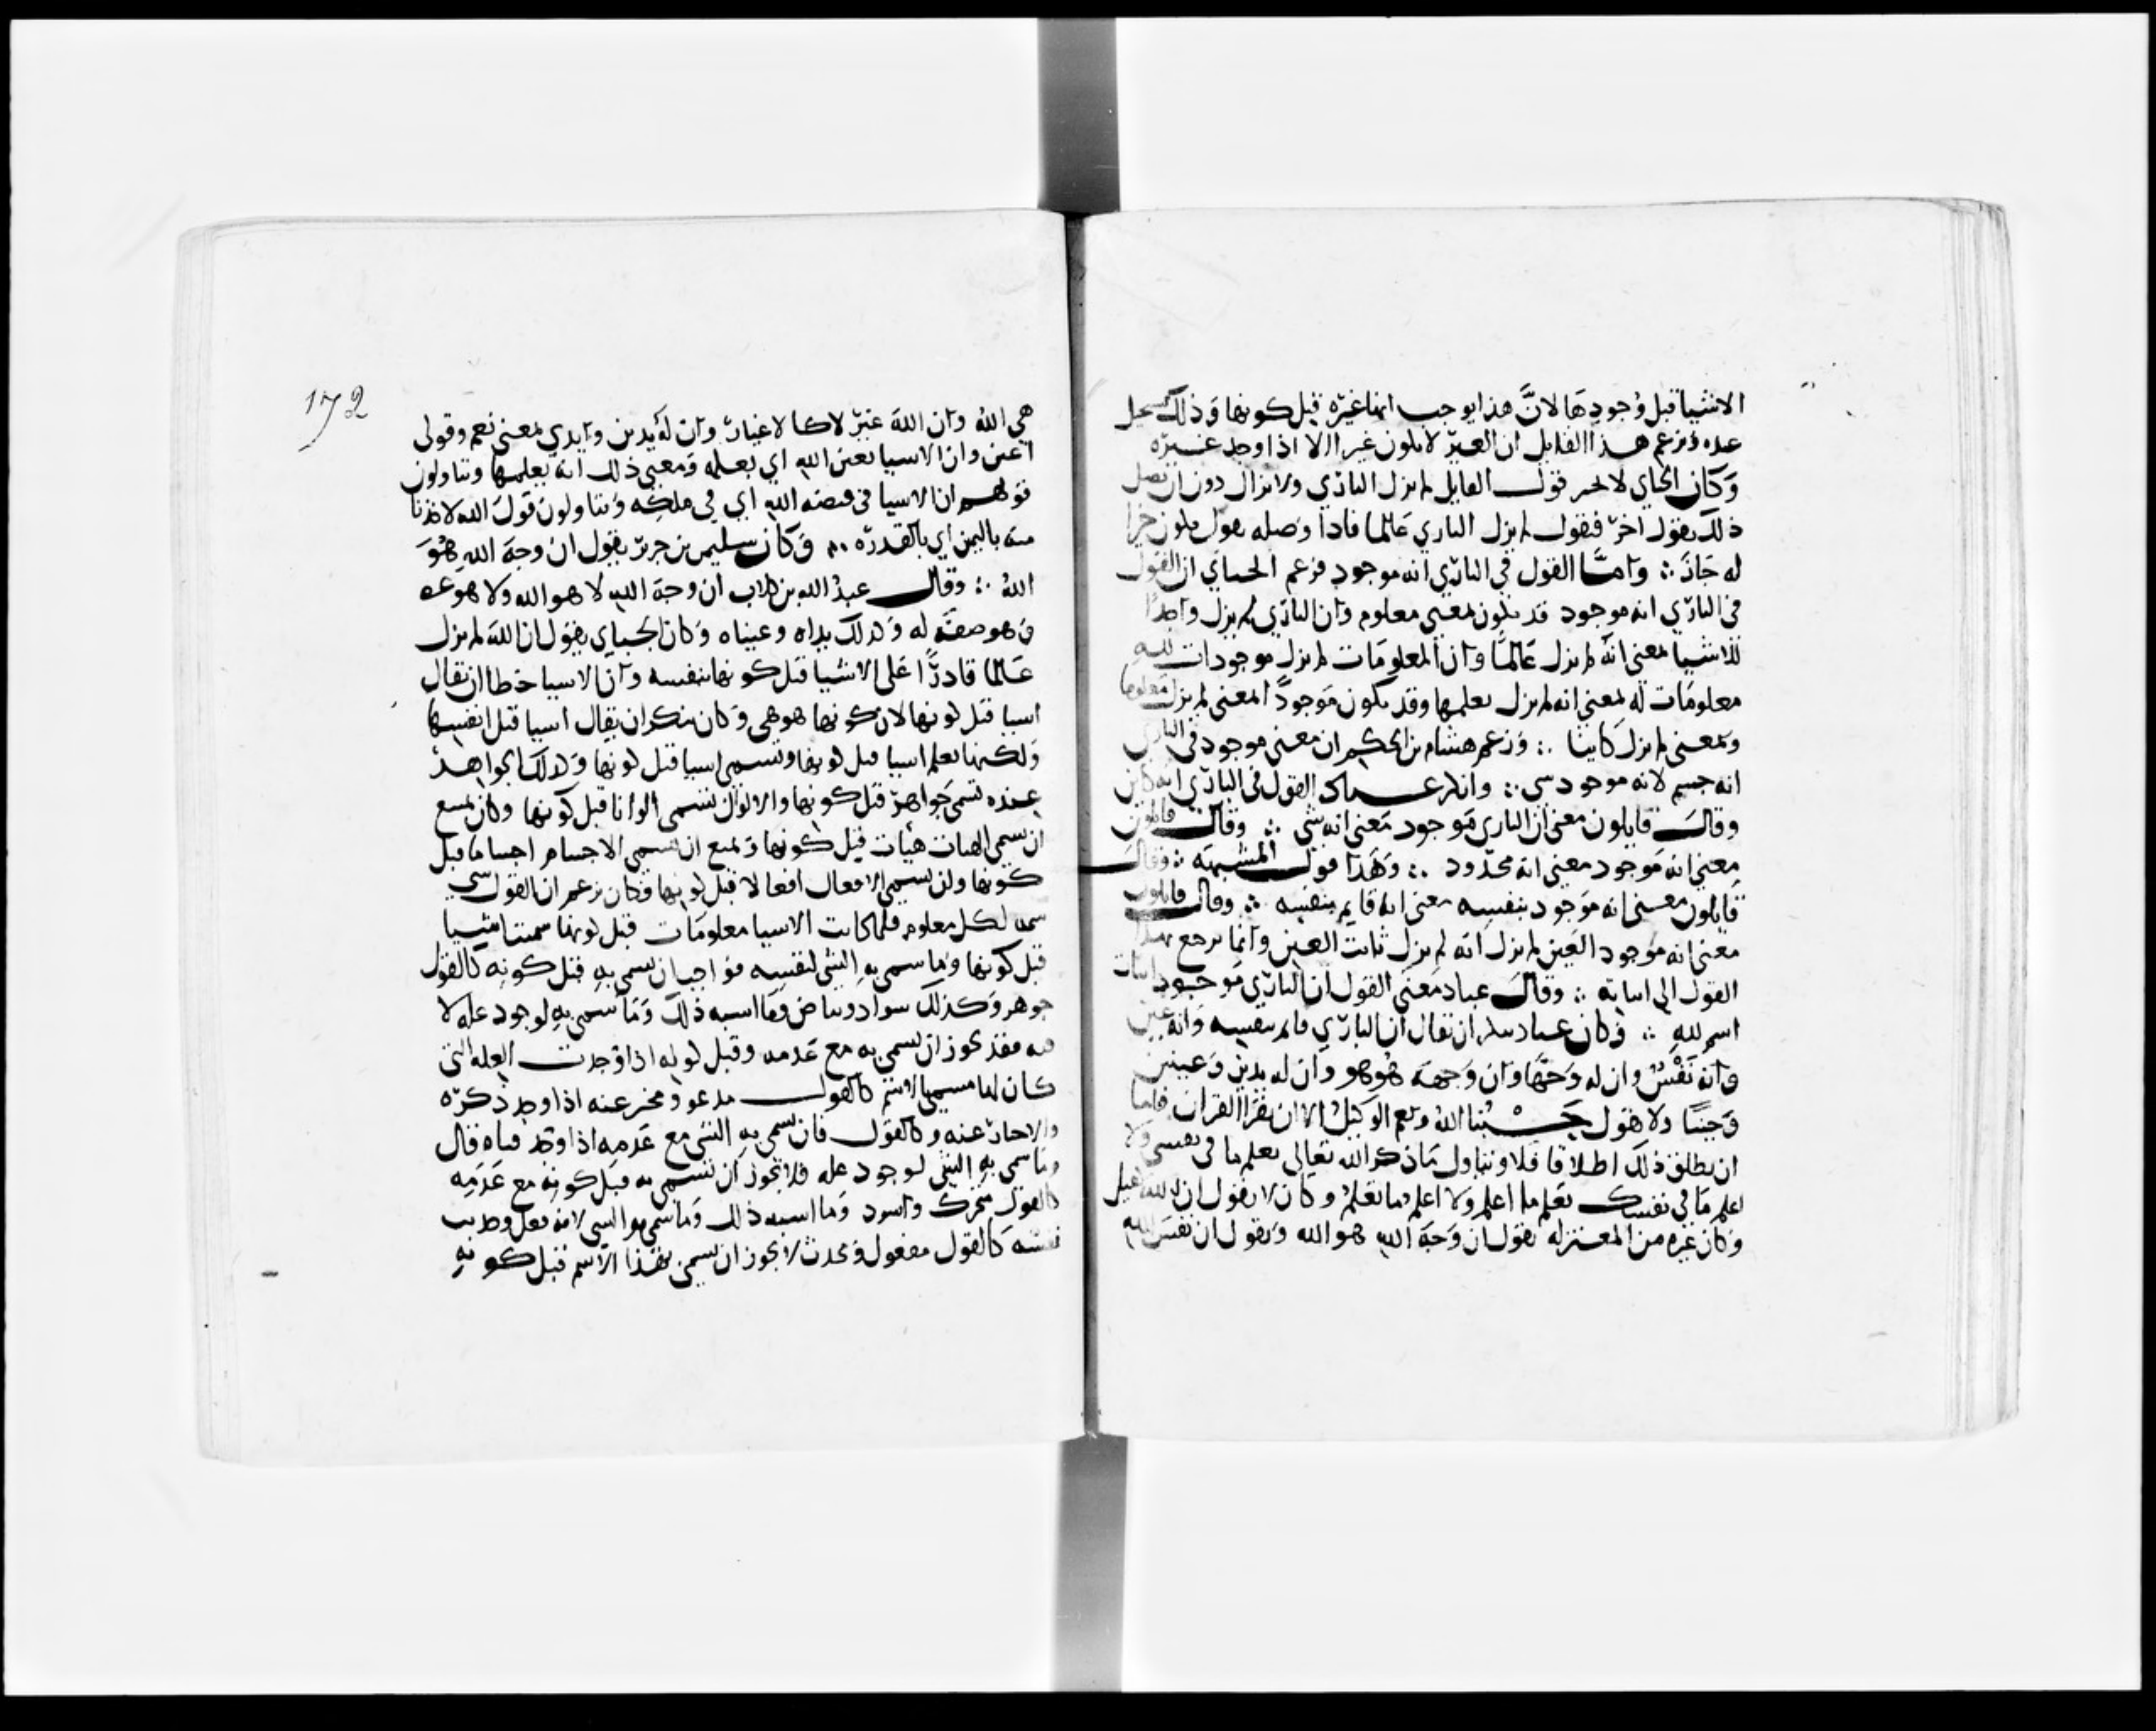 الاشيا قبل وُجودِهَا لانَّ هذا يوجب انها غيره قبل كونها وَذلك يستحيل
عنده وَزعم هذا القايل ان الغير لا يكون غيرا الا اذا وجد غيره
وَكان الجباي لا يجيز قول القايل لم يزل الباري ولا يزال دون ان يصل
ذلك بقول اخر فيقول لم يزل الباري عَالما فاذا وصله بقول يكون خبرا
له جَازَ ∴ وَامَّا القول في الباري انه موجود فزعم الجباي ان القول
في الباري انه موجود قد يكون بمعنى معلوم وان الباري لم يزل واجدًا
للاشيا بمعنى انه لم يزل عَالمًا وَان المعلومَات لم يزل موجودات للهِ
معلومَات له بمعنى انه لم يزل يعلمها وقد يكون مَوجودًا بمعنى لم يزل معلوما
وبمعنى لم يزل كاينا ∴ وَزعم هشام بن الحكم ان معنى موجود في الباري
انه جسم لانه موجود شي ∴ وانكر عباد القول في الباري انه كاين
وقالَ قايلون معنى ان الباري مَوجود مَعنى انه شي ∴ وقال قايلون
معنى انه مَوجود معنى انه محدود ∴ وَهَذا قول المشبهه ∴ وقالَ
قايلون معنى انه مَوجود بنفسِه معنى انه قايم بنفسه ∴ وقال قايلون
معنى انه مَوجود العَين لم يزل انه لم يزل ثابت العين وانما يرجع بهذا
القول الى اثباته ∴ وقالَ عباد مَعنى القول ان الباري مَوجود اثبات
اسم للهِ ∴ وَكان عباد ينكر ان يقال ان الباري قايم بنفسه وَانه عين
وانه نَفْسٌ وان له وَجهًا وان وَجهَه هُو هو وان له يدين وَعينين
وَجنبًا ولا يقول حَسْبُنا اللهُ ونعم الوكيلُ الا ان يقرا القران فاما
ان يطلق ذلك اطلاقا فلا ويتاول مَا ذكر الله تعالى تعلم ما في نفسي وَلا
اعلم مَا في نفسك تعلم ما اعلم وَلا اعلم ما تعلمُ وكان لا يقول ان لله قبل
وَكان غيره من المعتزله يقول ان وَجهَ الله هو الله ويقول ان نفسَ اللهِ
172
هي اللهُ وان اللهَ غيرٌ لا كالاغيار وان له يدين وايدي بمعنى نعم وقولى
اعين وان الاشيا بعين الله اي بعلمه وَمعنى ذلك انه يعلمها ويتاولون
قولهم ان الاشيا في قبضه الله اي في ملكِه ويتاولون قولَ الله لاخذنا
منه باليمين اي بالقدره ∴ وَكان سليمن بن جرير يقول ان وجهَ اللهِ هُوَ
اللهُ ∴ وقال عبدُ الله بن كلاب ان وجهَ الله لا هو الله ولا هو غيره
وَهو صفَة له وَكذلك يداه وعيناه وَكان الجباي يقول ان اللهَ لم يزل
عَالما قادرًا عَلى الاشيا قبل كونها بنفسه وان الاشيا خطا ان يقال
اشيا قبل كونها لان كونها هو هي وَكان ينكر ان يقال اشيا قبل انفسها
وَلكنها تعلم اشيا قبل كونها وتسمى اشيا قبل كونها وَكذلك الجواهر
عنده تسمى جَواهر قبل كونها والالوان تسمى الوانا قبل كونها وكان يمنع
ان تسمى الهيات هيات قبل كونها وَيمنع ان تسمى الاجسام اجساما قبل
كونها وان تسمى الافعال افعالا قبل كونها وَكان يزعم ان القول شي
سمه لكل معلوم فلما كانت الاشيا معلومَات قبل كونها سميت اشيا
قبل كونها وَما سمي به الشي لنفسِه فواجب ان يسمى به قبل كونه كالقول
جوهر وَكذلك سواد وبياض وَمَا اشبه ذلك وَمَا سُمي به لوجود عله لا
فيه فقد يجوز ان يسمى به مع عَدمه وقبل كونه اذا وُجدت العله التي
كان لها مسمي بالاسم كالقول مدعو ومخبر عنه اذا وجد ذكره
والاخبار عنه وكالقول فان يسمى بهِ الشي مع عَدمِه اذا وجد فناه قال
وما سمي بهِ الشي لوجود عله فلا يجوز ان يسمى به قبل كونه مع عَدَمِه
كالقول متحرك واسود وَما اشبه ذلك وَما سمي به الشي لانه فعل وحدث
نفسه كالقول مفعول وَمحدث لا يجوز ان يسمى بهَذا الاسم قبل كونهِ